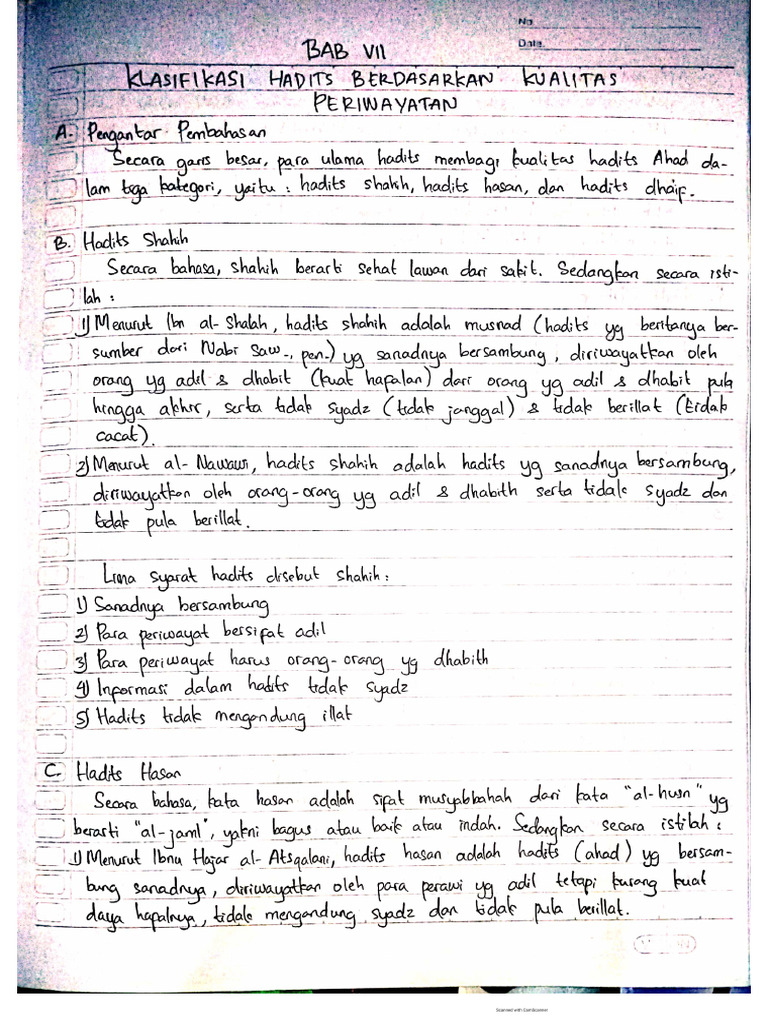 No
Date.
BAB VII
KLASIFIKASI HADITS BERDASARKAN KUALITAS
PERIWAYATAN
A. Pengantar Pembahasan
Secara garis besar, para ulama hadits membagi kualitas hadits Ahad da-
lam tiga kategori, yaitu : hadits shahih, hadits hasan, dan hadits dhaif.
B. Hadits Shahih
Secara bahasa, shahih berarti sehat lawan dari sakit. Sedangkan secara isti-
lah :
1) Menurut Ibn al-Shalah, hadits shahih adalah musnad (hadits yg beritanya ber-
sumber dari Nabi Saw., pen.) yg sanadnya bersambung, diriwayatkan oleh
orang yg adil & dhabit (kuat hapalan) dari orang yg adil & dhabit pula
hingga akhir, serta tidak syadz (tidak janggal) & tidak berillat (tidak
cacat).
2) Menurut al-Nawawi, hadits shahih adalah hadits yg sanadnya bersambung,
diriwayatkan oleh orang-orang yg adil & dhabith serta tidak syadz dan
tidak pula berillat.
Lima syarat hadits disebut shahih :
1) Sanadnya bersambung
2) Para periwayat bersifat adil
3) Para periwayat harus orang-orang yg dhabith
4) Informasi dalam hadits tidak syadz
5) Hadits tidak mengandung illat
C. Hadits Hasan
Secara bahasa, kata hasan adalah sifat musyabbahah dari kata "al-husn" yg
berarti "al-jaml", yakni bagus atau baik atau indah. Sedangkan secara istilah :
1) Menurut Ibnu Hajar al-Atsqalani, hadits hasan adalah hadits (ahad) yg bersam-
bung sanadnya, diriwayatkan oleh para perawi yg adil tetapi kurang kuat
daya hapalnya, tidak mengandung syadz dan tidak pula berillat.
Scanned with CamScanner